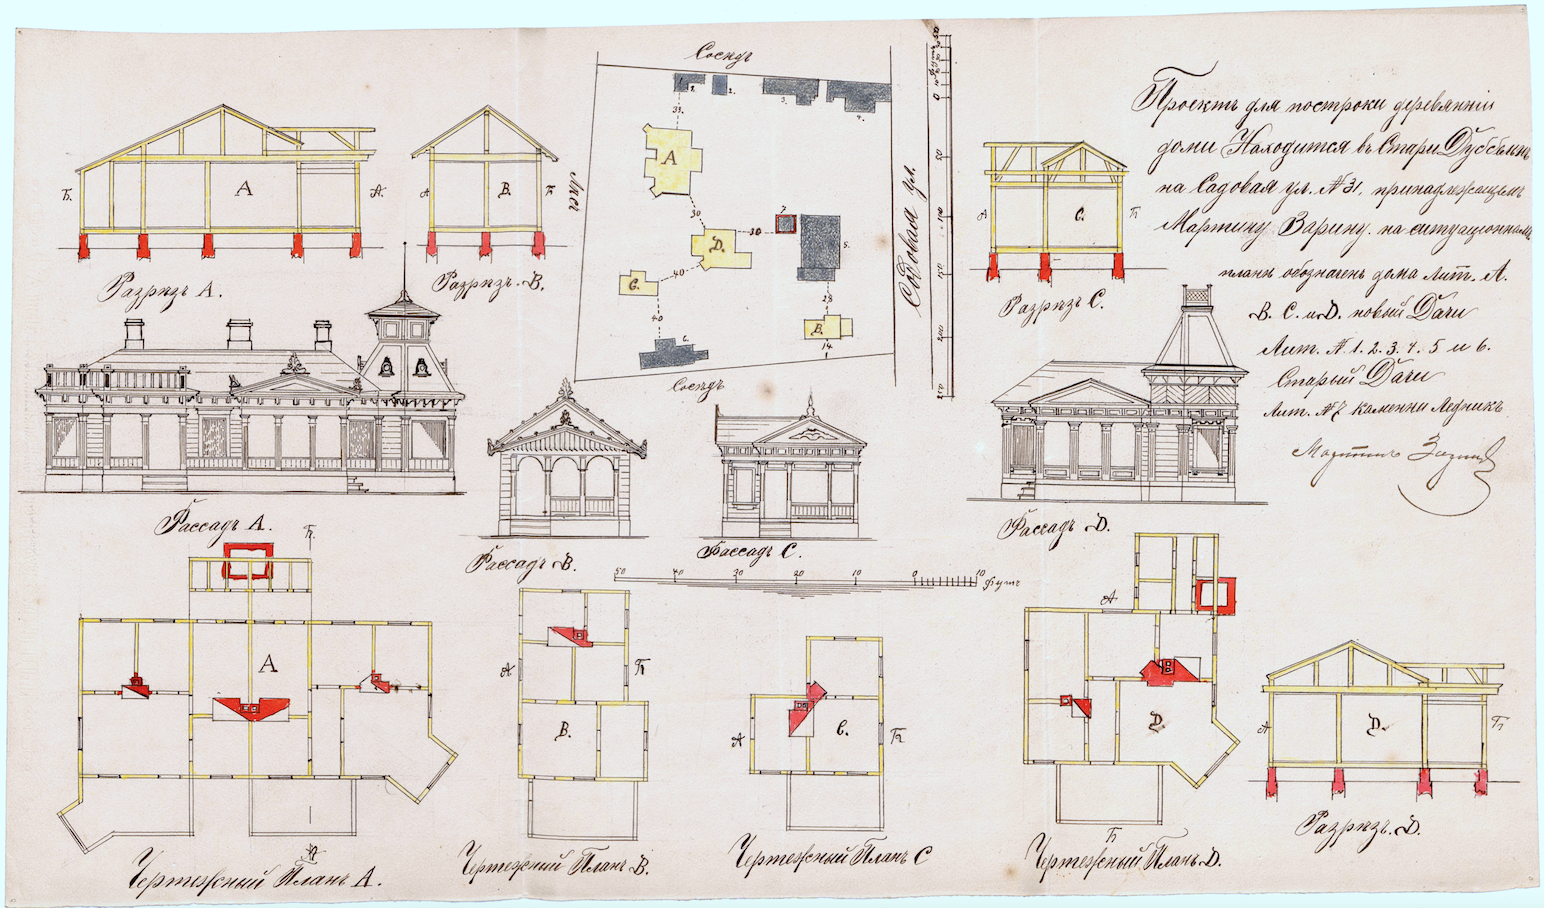 Проектъ для построки деревянніи
доми Находится въ Стари Дуббельнъ
на Садовая ул. № 31, принадлежащемъ
Мартину Зарину. на ситуаціонномъ
планъ обозначенъ дома лит. А.
В. С. и D. новый Дачи
Лит. № 1. 2. 3. 4. 5 и 6.
Старый Дачи
Лит. № 7 каменни Ледникъ
Мартинъ Заринъ
Сосѣдъ
Сосѣдъ
Садовая ул.
1.
2.
3.
4.
5.
6.
7
A
B.
C.
D.
33.
30
30
40
40
28
14.
0
50
100
150
200
Б.
A
А.
Разрѣзъ А.
А
B.
Б
Разрѣзъ В.
А
C.
Б
Разрѣзъ С.
Фассадъ А.
Фассадъ В.
Фассадъ С.
Фассадъ D.
50
40
30
20
10
0
10
Футъ
Б.
A
А
Чертежный Планъ А.
А
Б
B.
Чертежный Планъ В.
А
Б
C.
Чертежный Планъ С
А
D.
Б
Чертежный Планъ D.
А
D.
Б
Разрѣзъ. D.